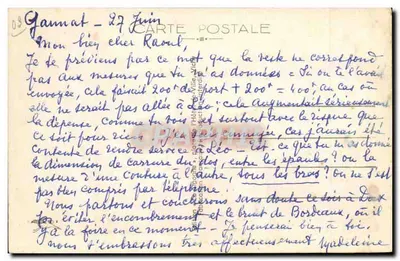 Gannat - 27 Juin
CARTE POSTALE
Mon bien cher Raoul,
Je te préviens par ce mot que la veste ne correspond
pas aux mesures que tu m'as données - Si on te l'avait
envoyée, cela faisait 200ᶠ de port + 200ᶠ = 400ᶠ au cas où
elle ne serait pas allée à Léo; cela augmentait sérieusement
la dépense, comme tu vois et surtout avec le risque que
ce soit pour rien. J'en suis car j'aurais été
contente de rendre service à Léo - est-ce que tu m'as donné
la dimension de carrure du dos, entre les épaules? ou la
mesure d'une couture à l'autre, sous les bras? on ne s'est
pas bien compris par téléphone
Nous partons et coucherons sans doute ce soir à Dax
pour éviter l'encombrement et le bruit de Bordeaux, où il
y a la foire en ce moment. Je penserai bien à toi.
nous t'embrassons très affectueusement Madeleine